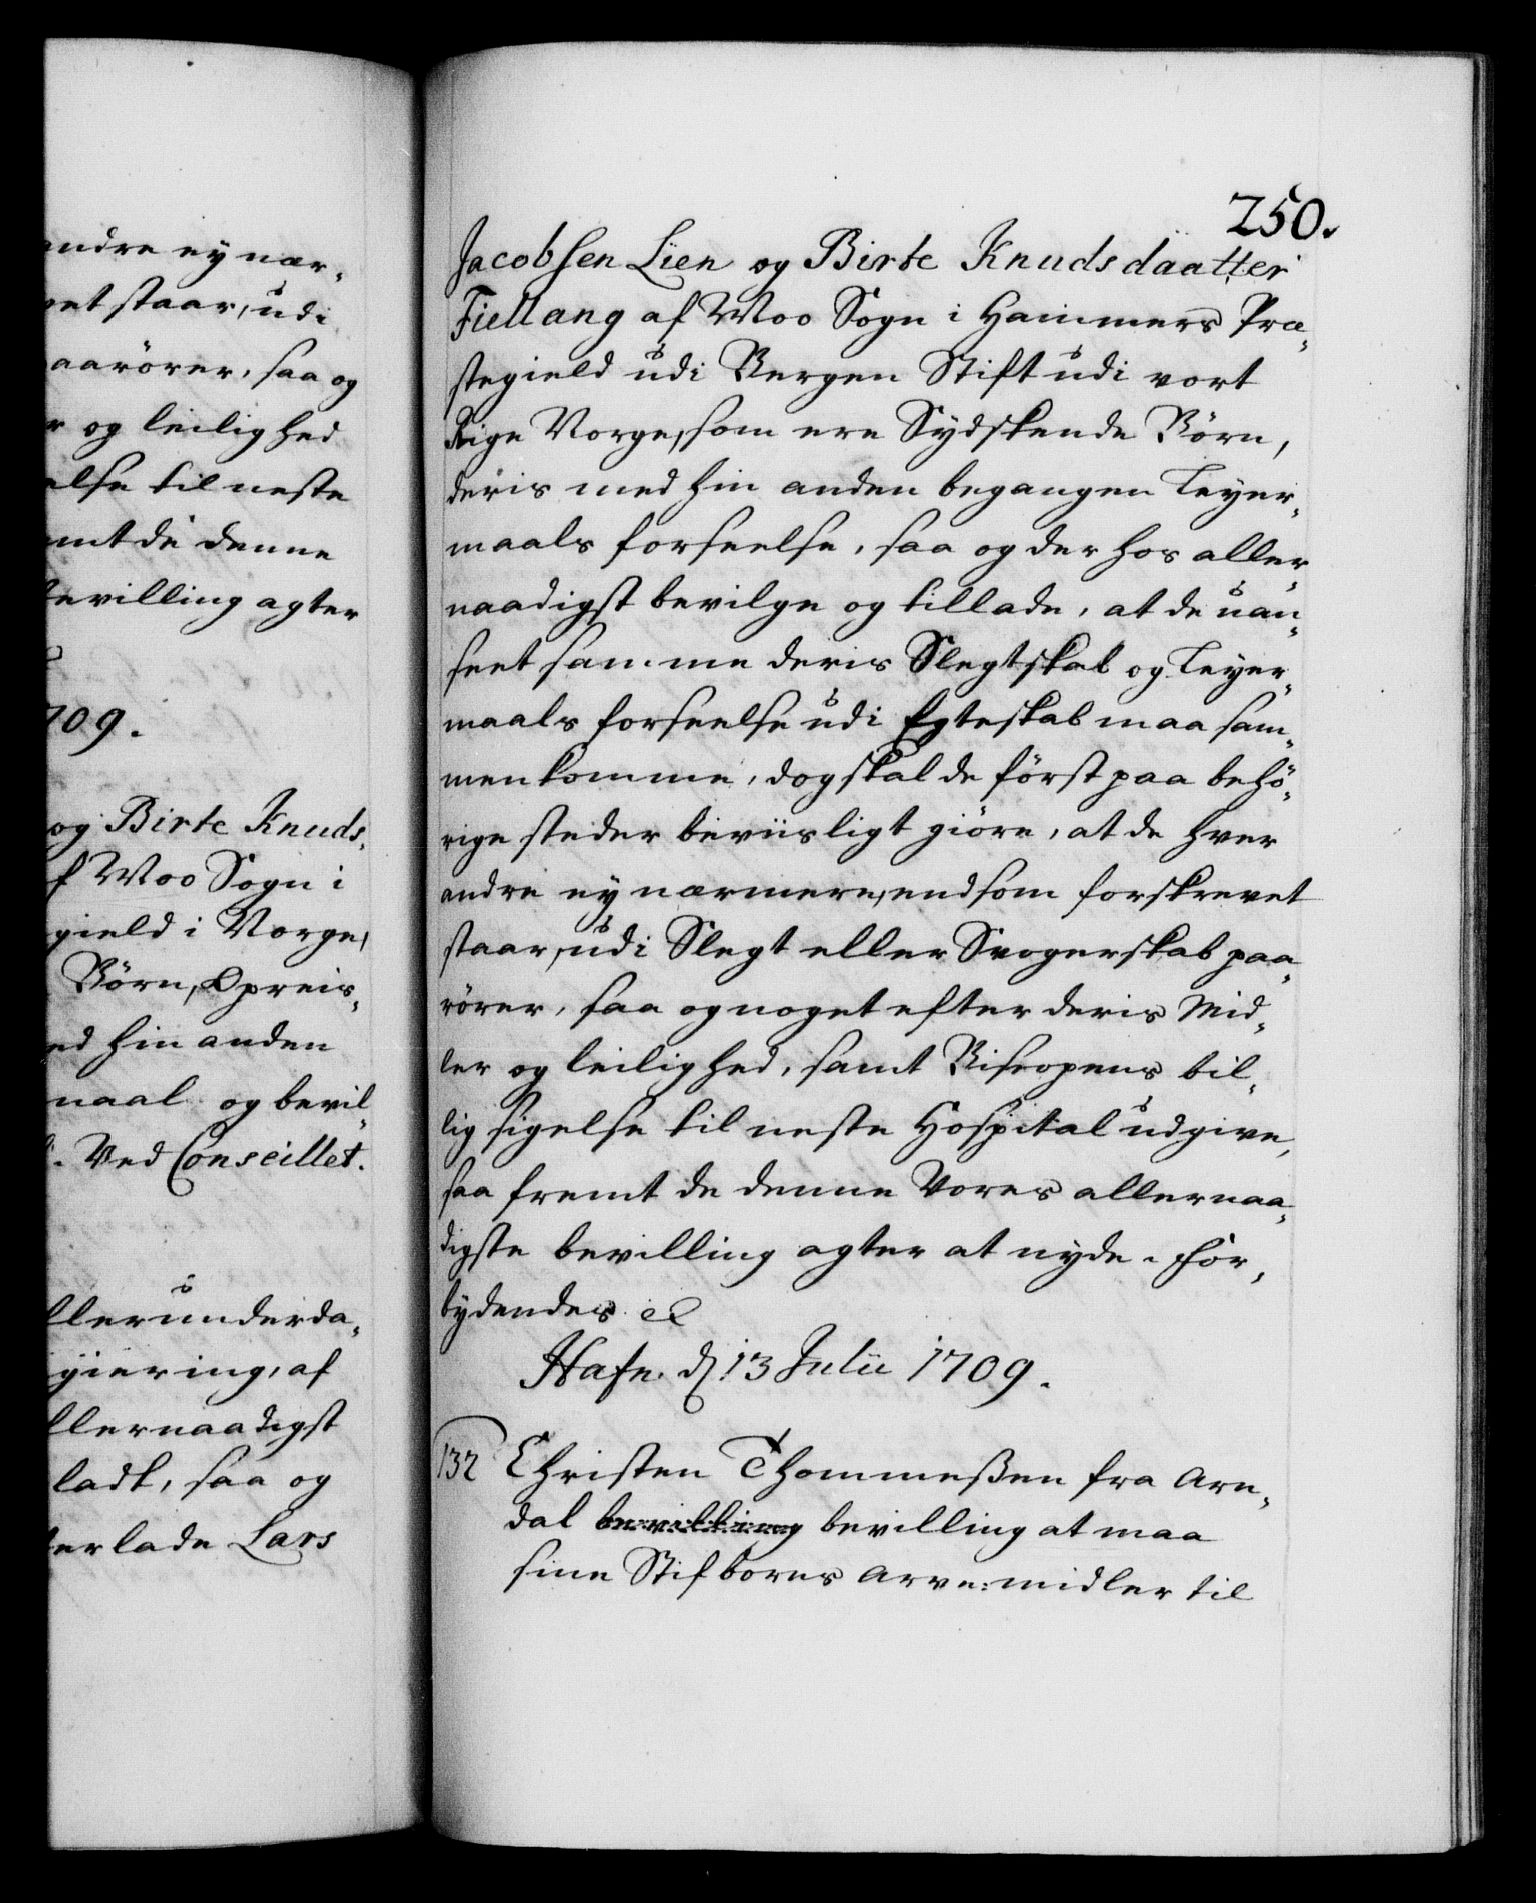 andre ey nær-
vet staar, udi
paarörer, saa og
r og leilighed
else til neste
emt de denne
bevilling agter
709.
og Birte Knuds-
f Moo Sogn i
gield i Norge,
Börn, Opreis-
ed hin anden
maal og bevil-
Ved Conseillet.
llerunderda-
giering, af
llernaadigst
ladt, saa og
terlade Lars
250.
Jacobsen Lien og Birte Knudsdaatter
Fiellang af Moo Sogn i Hammers Præ-
stegield udi Bergen Stift udi vort
Rige Norge, som ere Sydskende Börn,
deris med hin anden begangen Leyer-
maals forseelse, saa og der hos aller-
naadigst bevilge og tillade, at de uan-
seet samme deris Slegtskab og Leyer-
maals forseelse udi Egteskab maa sam-
menkomme, dog skal de först paa behö-
rige steder beviisligt giöre, at de hver
andre ey nærmere, end som forskrevet
staar, udi Slegt eller Svogerskab paa-
rörer, saa og noget efter deris Mid-
ler og leilighed, samt Biscopens bil-
lig sigelse til neste Hospital udgive,
saa fremt de denne Vores allernaa-
digste bevilling agter at nyde. For-
bydendes etc
Hafn. d. 13 Julii 1709.
132 Christen Thommeßen fra Arn-
dal bevilling bevilling at maa
sine Stifbörns Arve-midler til